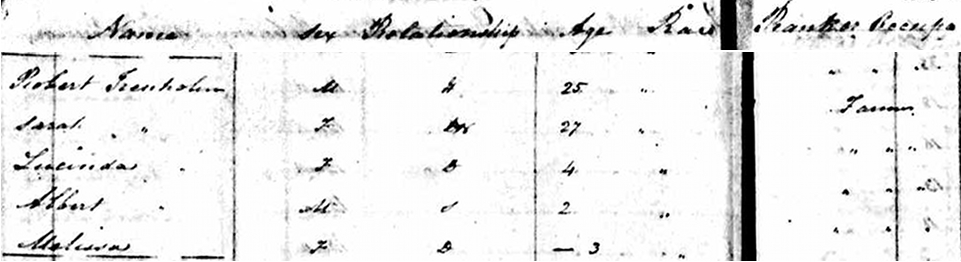 Name Sex Relationship Age Race Rank or Occupa
Robert Trenholm M H 25 "
Farmer
Sarah " F W 27 "
Lucinda " F D 4 "
Albert " M S 2 "
Melissa F D — 3 "